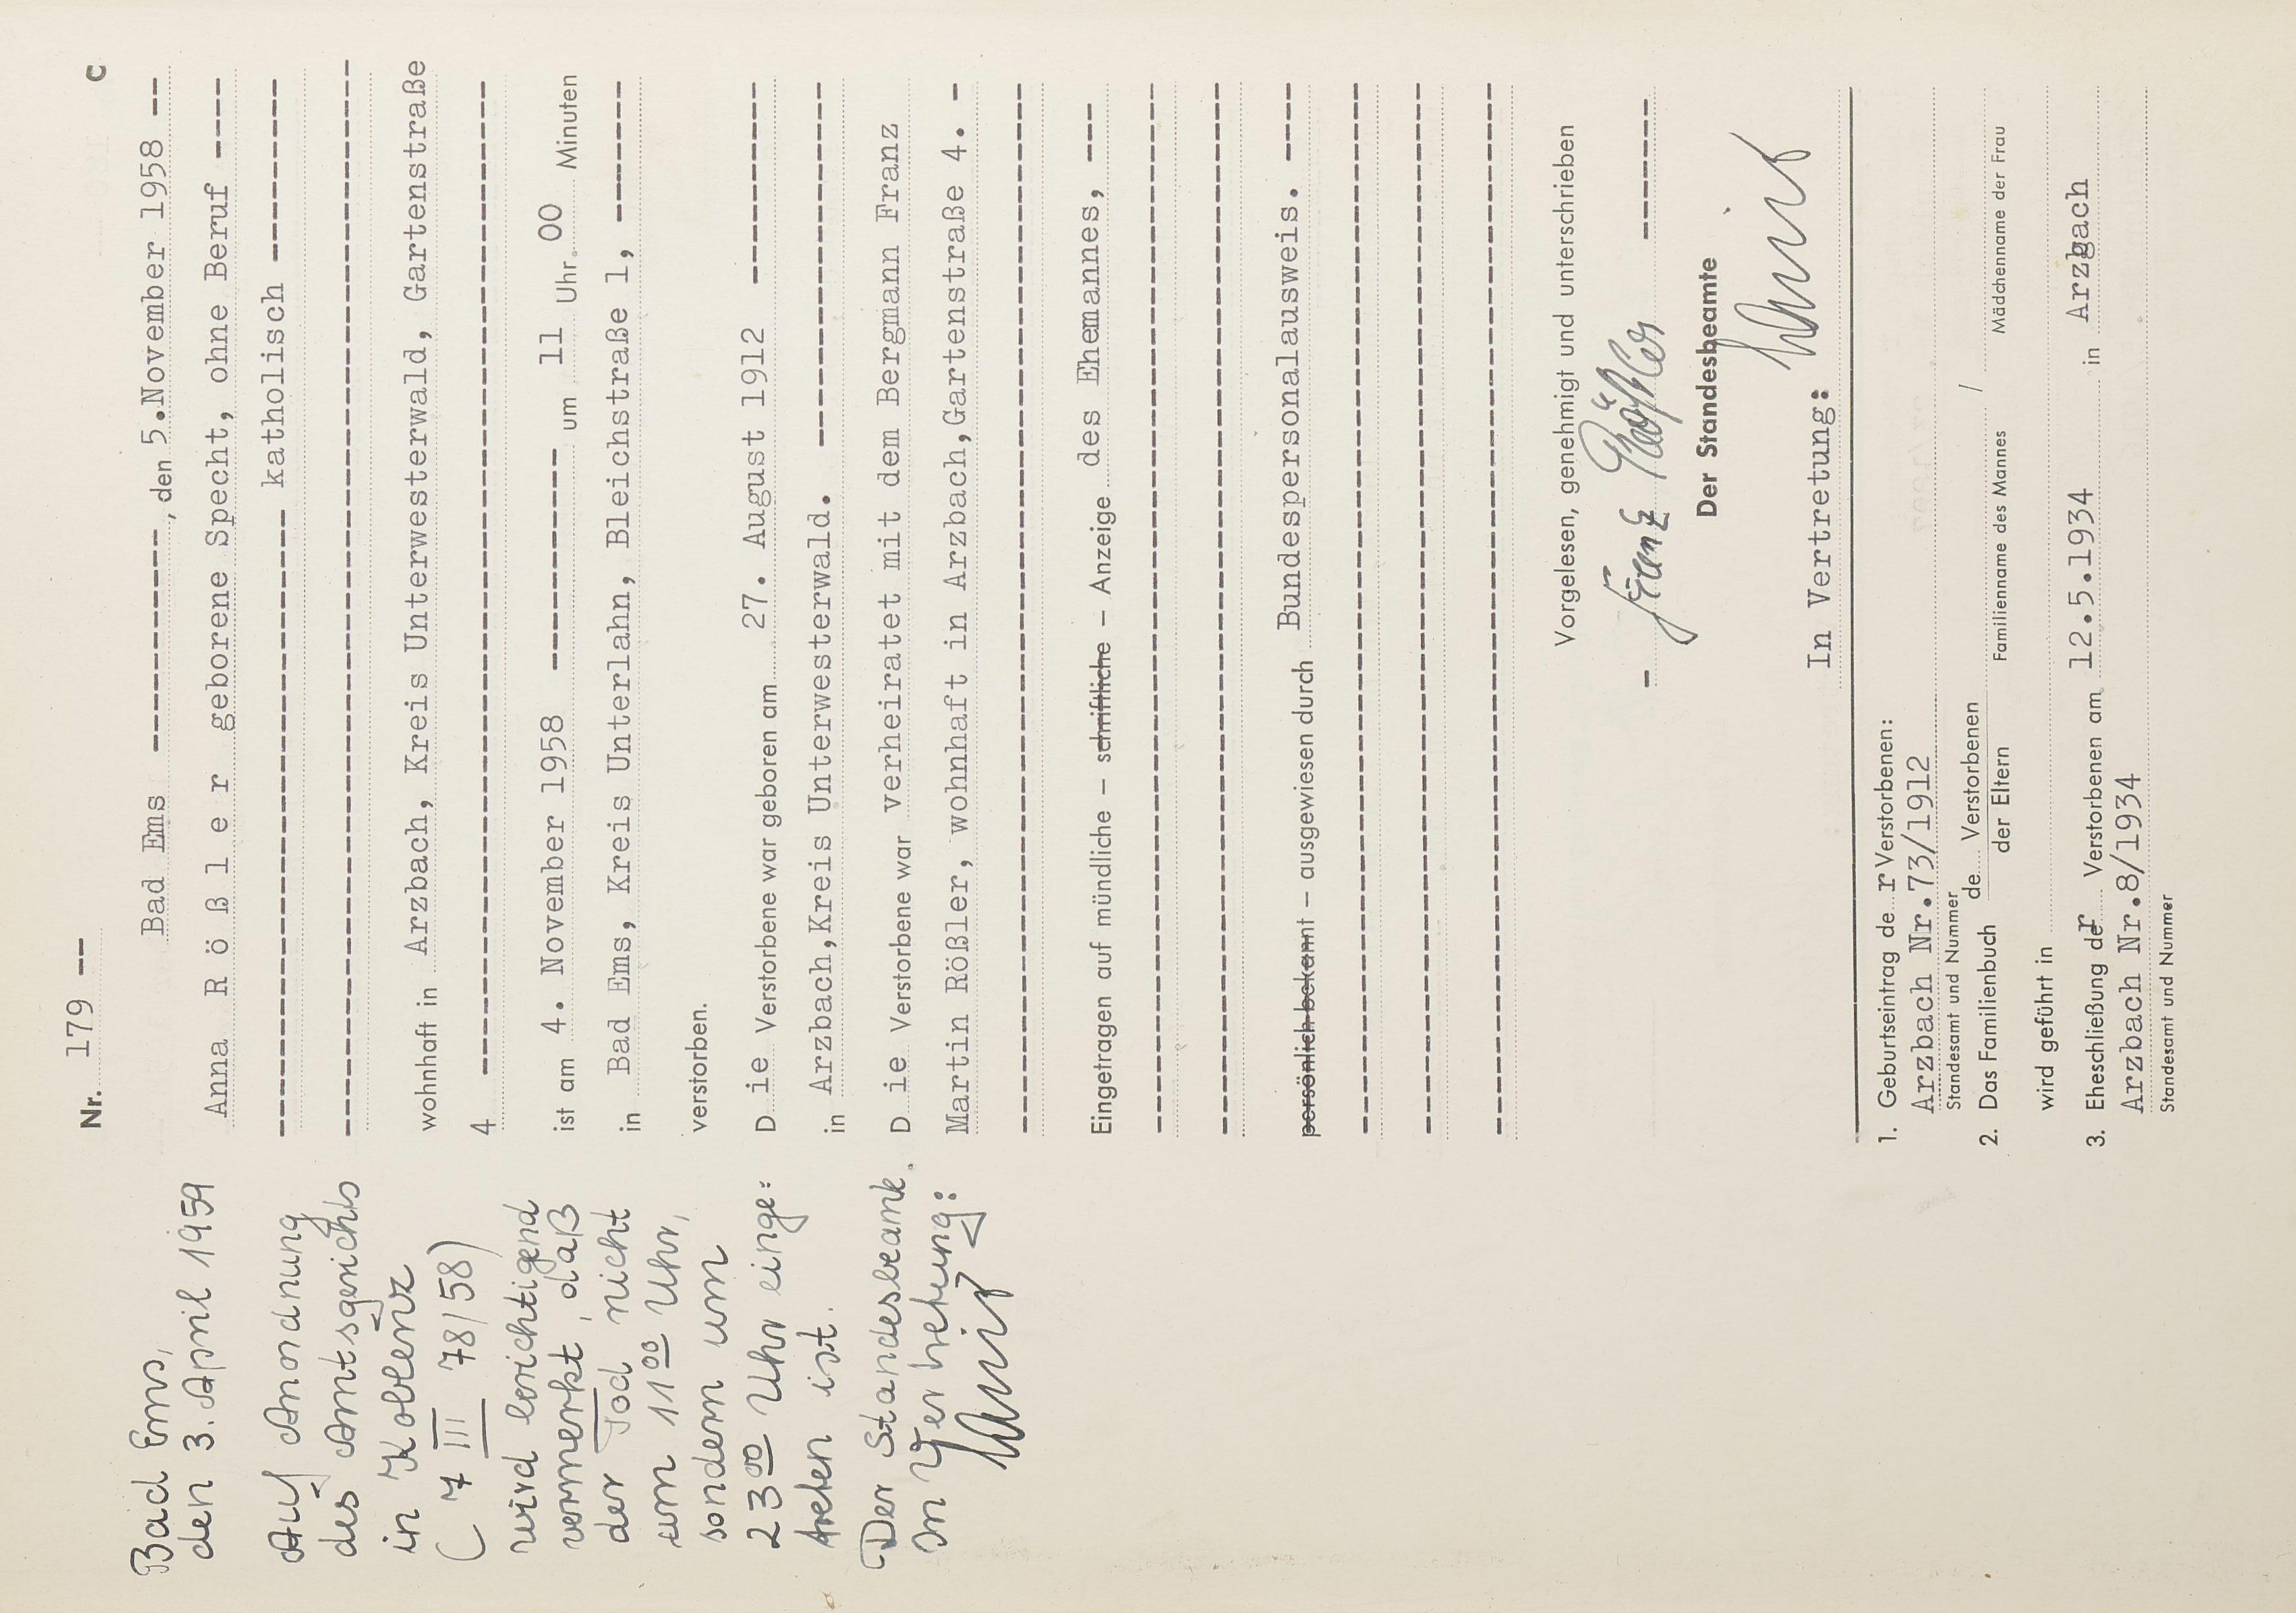 Nr. 179 --
C
Bad Ems ----------, den 5.November 1958 --
Anna R ö ß l e r geborene Specht, ohne Beruf ----
---------------------------- katholisch ---------
wohnhaft in Arzbach, Kreis Unterwesterwald, Gartenstraße
4 --------------------------------------------------
ist am 4. November 1958 ---------- um 11 Uhr 00 Minuten
in Bad Ems, Kreis Unterlahn, Bleichstraße 1, -------
verstorben.
D ie Verstorbene war geboren am 27. August 1912 ---------
in Arzbach,Kreis Unterwesterwald. -----------------
D ie Verstorbene war verheiratet mit dem Bergmann Franz
Martin Rößler, wohnhaft in Arzbach,Gartenstraße 4. -
Eingetragen auf mündliche – schriftliche – Anzeige des Ehemannes, ---
persönlich bekannt – ausgewiesen durch Bundespersonalausweis. ----
Vorgelesen, genehmigt und unterschrieben
- Franz Rößler -------
Der Standesbeamte
In Vertretung:
1. Geburtseintrag de r Verstorbenen:
Arzbach Nr.73/1912
Standesamt und Nummer
2. Das Familienbuch de Verstorbenen / der Eltern /
Familienname des Mannes Mädchenname der Frau
wird geführt in
3. Eheschließung der Verstorbenen am 12.5.1934 in Arzbach
Arzbach Nr.8/1934
Standesamt und Nummer
Bad Ems,
den 3. April 1959
Auf Anordnung
des Amtsgerichts
in Koblenz
( 7 III 78/58)
wird berichtigend
vermerkt, daß
der Tod nicht
um 11 00 Uhr,
sondern um
23 00 Uhr einge=
treten ist.
Der Standesbeamte
In Vertretung: